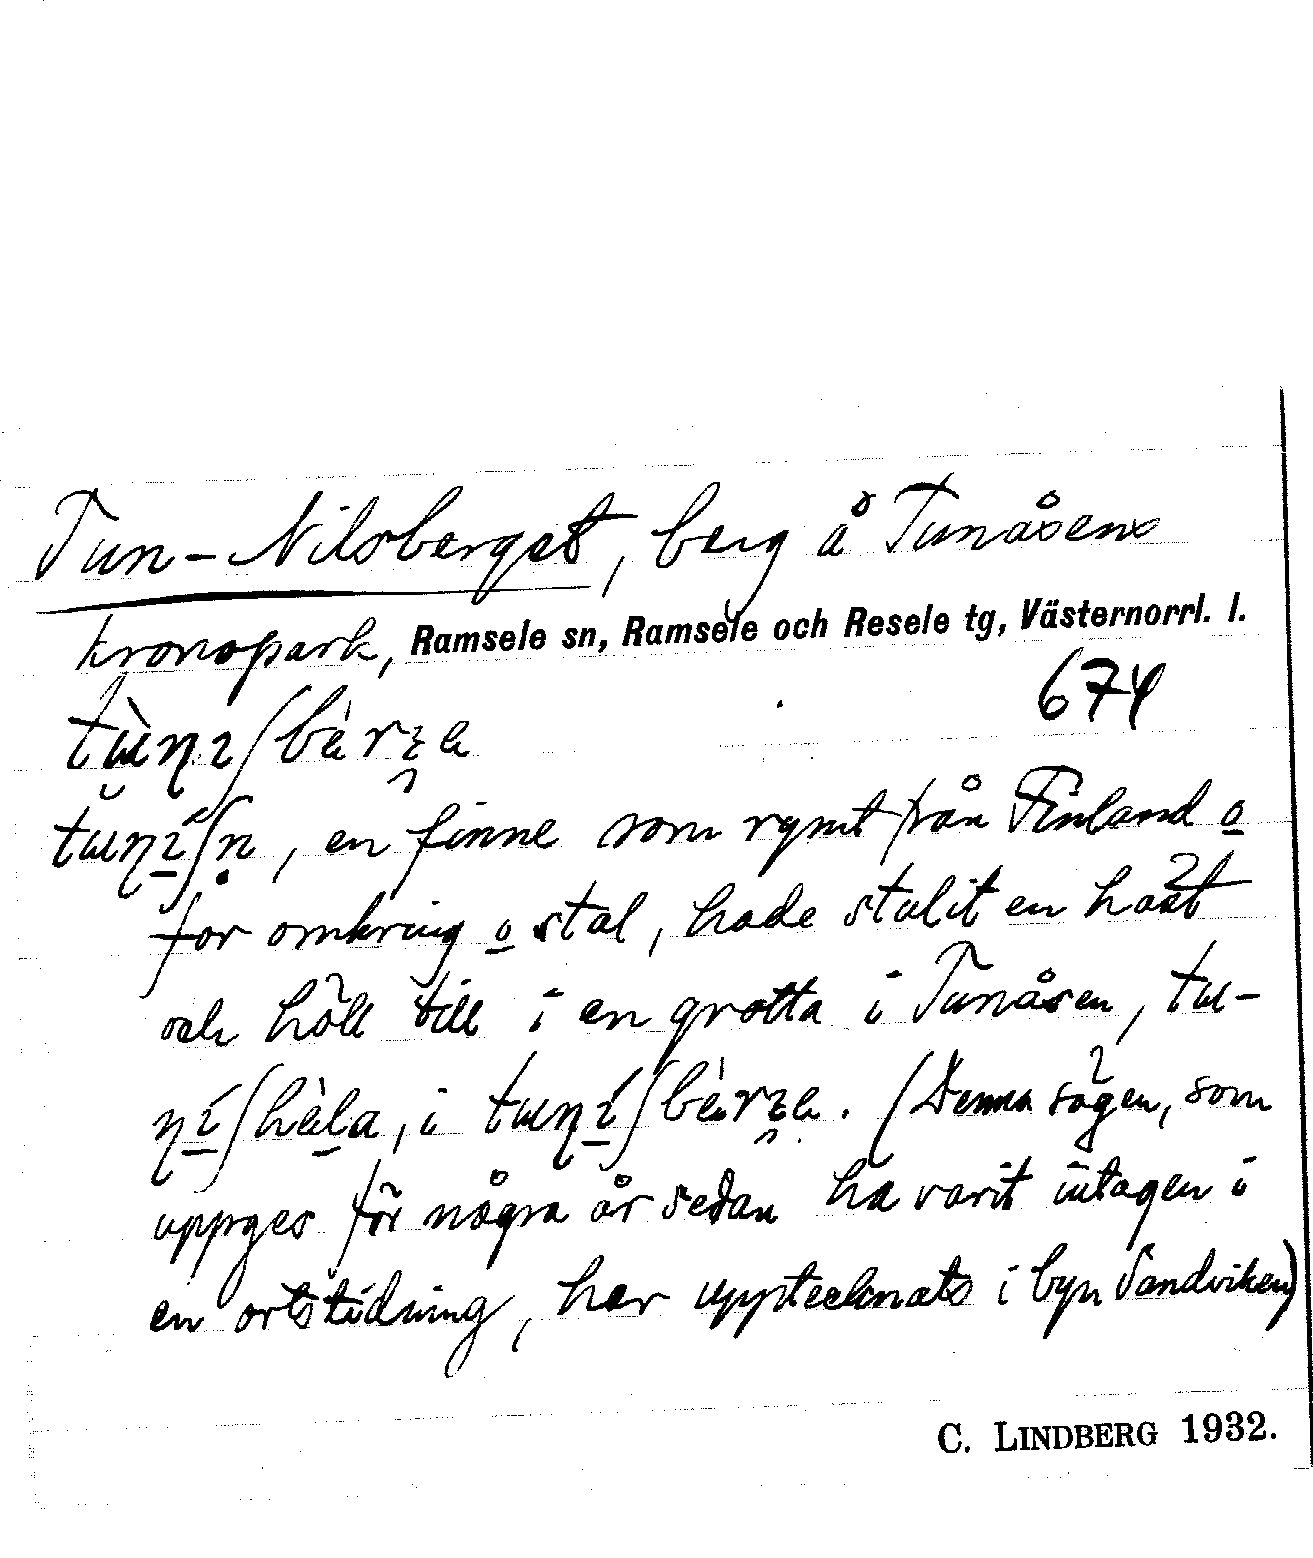 Tun-Nilsberget, berg å Tunåsens
kronopark, Ramsele sn, Ramsele och Resele tg, Västernorrl. l.
674
, en finne som rymt från Finland o
for omkring o stal, hade stulit en häst
och höll till i en grotta i Tunåsen,
, i . (Denna sägen, som
uppges för några år sedan ha varit intagen i
en ortstidning, har upptecknats i byn Sandviken)
C. LINDBERG 1932.